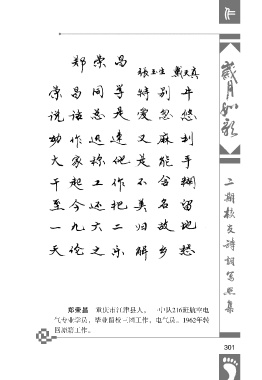 作
郑荣昌
张玉生 戴天真
荣昌同学特别牛
说话总是爱忽悠
动作迅速又麻利
大家称他是能手
干起工作不含糊
至今还把美名留
一九六二归故地
天伦之乐解乡愁
岁月如歌
二期校友诗词写照集
郑荣昌 重庆市江津县人。一中队216班航空电
气专业学员，毕业留校三网工作，电气员。1962年转
回原籍工作。
301